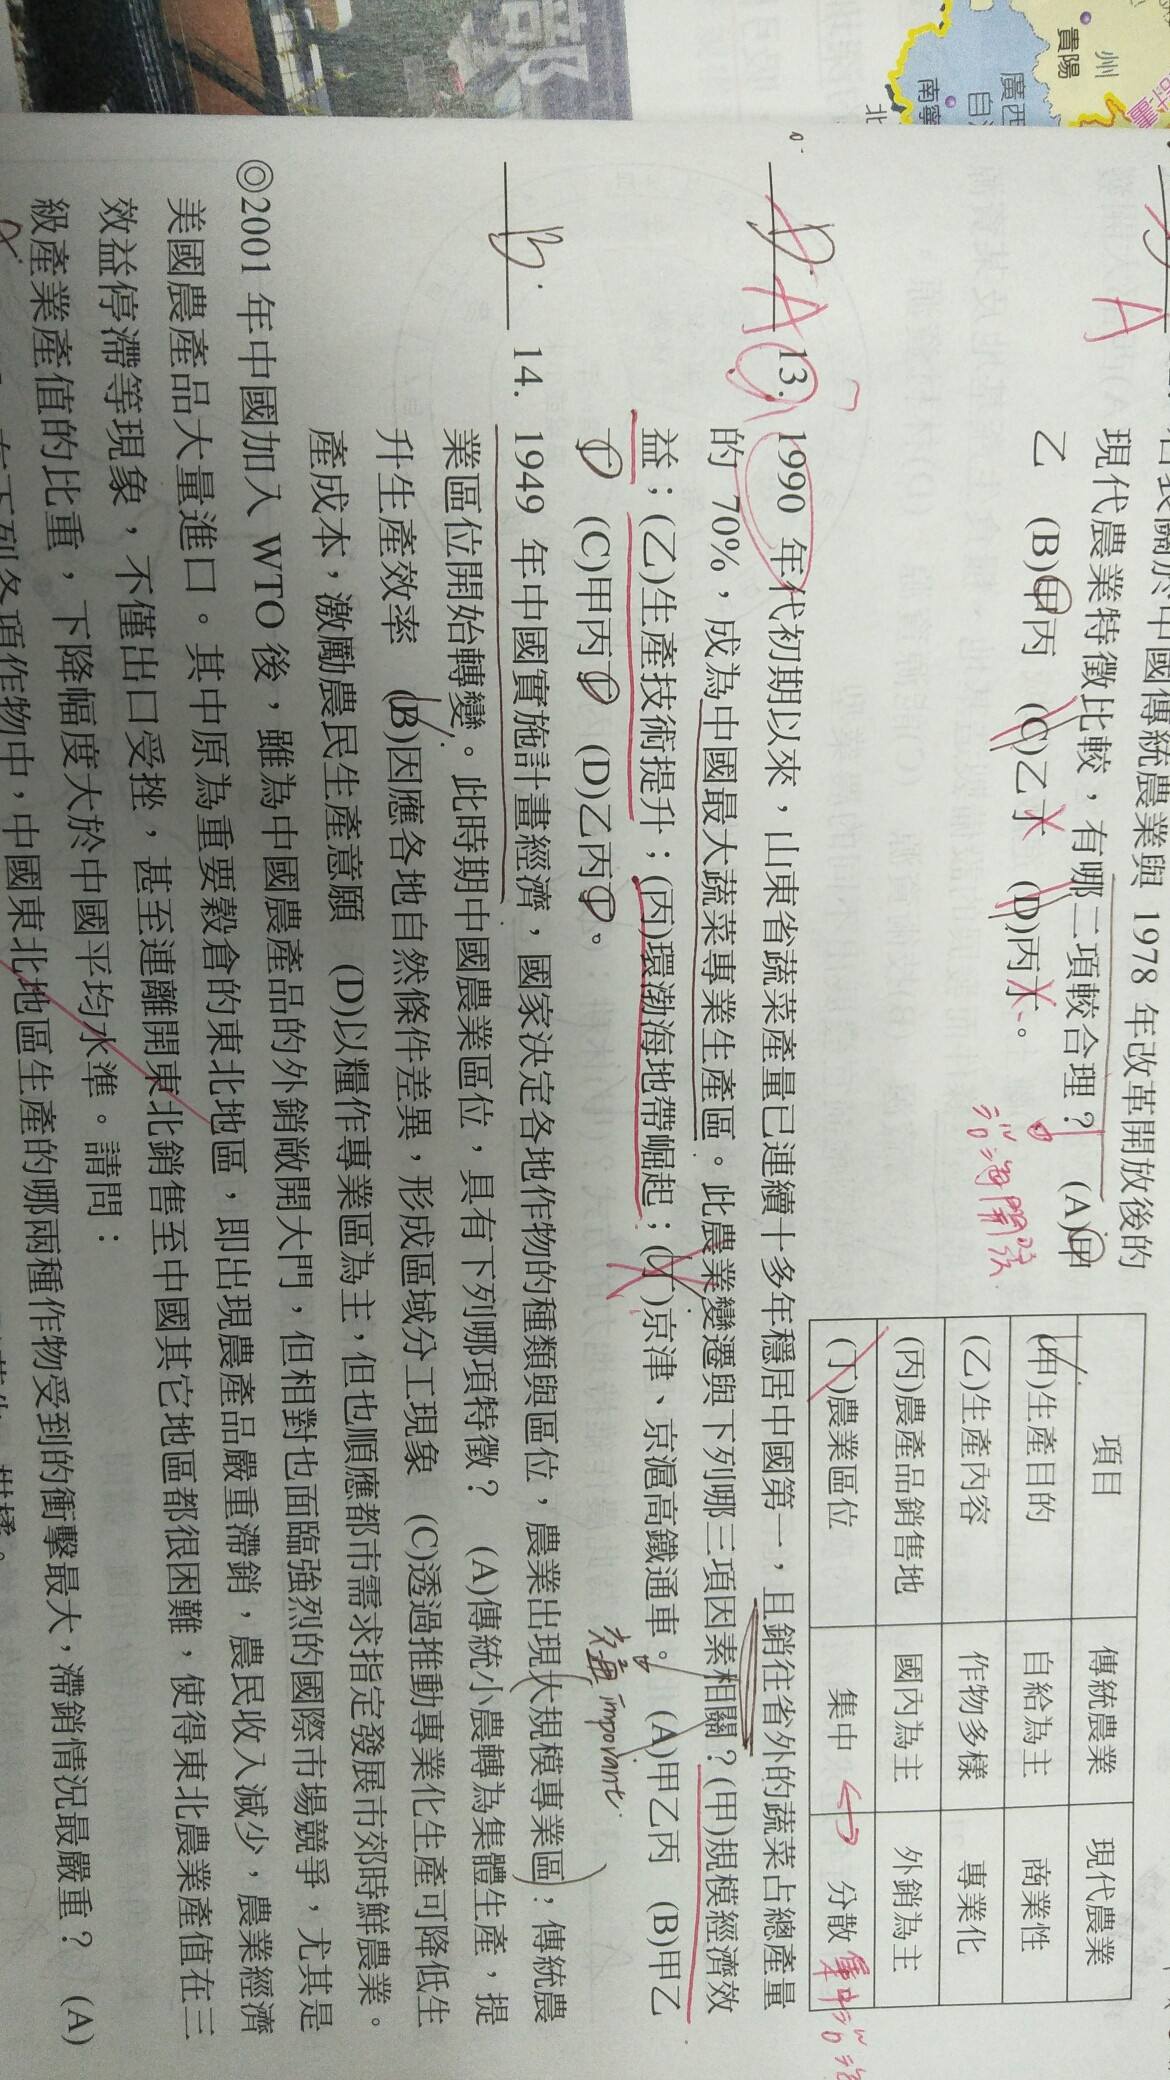 州
貴陽
廣西
南寧
北
部
A
表關於中國傳統農業與 1978 年改革開放後的
現代農業特徵比較，有哪二項較合理？ (A)甲
乙 (B)甲丙 (C)乙丁 (D)丙丁。
沿海開放
項目 傳統農業 現代農業
(甲)生產目的 自給為主 商業性
(乙)生產內容 作物多樣 專業化
(丙)農產品銷售地 國內為主 外銷為主
(丁)農業區位 集中 分散
集中沿海
D A 13. 1990 年代初期以來，山東省蔬菜產量已連續十多年穩居中國第一，且銷往省外的蔬菜占總產量
的 70%，成為中國最大蔬菜專業生產區。此農業變遷與下列哪三項因素相關？(甲)規模經濟效
益；(乙)生產技術提升；(丙)環渤海地帶崛起；(丁)京津、京滬高鐵通車。 (A)甲乙丙 (B)甲乙
丁 (C)甲丙丁 (D)乙丙丁。
B 14. 1949 年中國實施計畫經濟，國家決定各地作物的種類與區位，農業出現大規模專業區，傳統農
業區位開始轉變。此時期中國農業區位，具有下列哪項特徵？ (A)傳統小農轉為集體生產，提
升生產效率 (B)因應各地自然條件差異，形成區域分工現象 (C)透過推動專業化生產可降低生
產成本，激勵農民生產意願 (D)以糧作專業區為主，但也順應都市需求指定發展市郊時鮮農業。
◎2001 年中國加入 WTO 後，雖為中國農產品的外銷敞開大門，但相對也面臨強烈的國際市場競爭，尤其是
美國農產品大量進口。其中原為重要穀倉的東北地區，即出現農產品嚴重滯銷，農民收入減少，農業經濟
效益停滯等現象，不僅出口受挫，甚至連離開東北銷售至中國其它地區都很困難，使得東北農業產值在三
級產業產值的比重，下降幅度大於中國平均水準。請問：
在下列各項作物中，中國東北地區生產的哪兩種作物受到的衝擊最大，滯銷情況最嚴重？ (A)